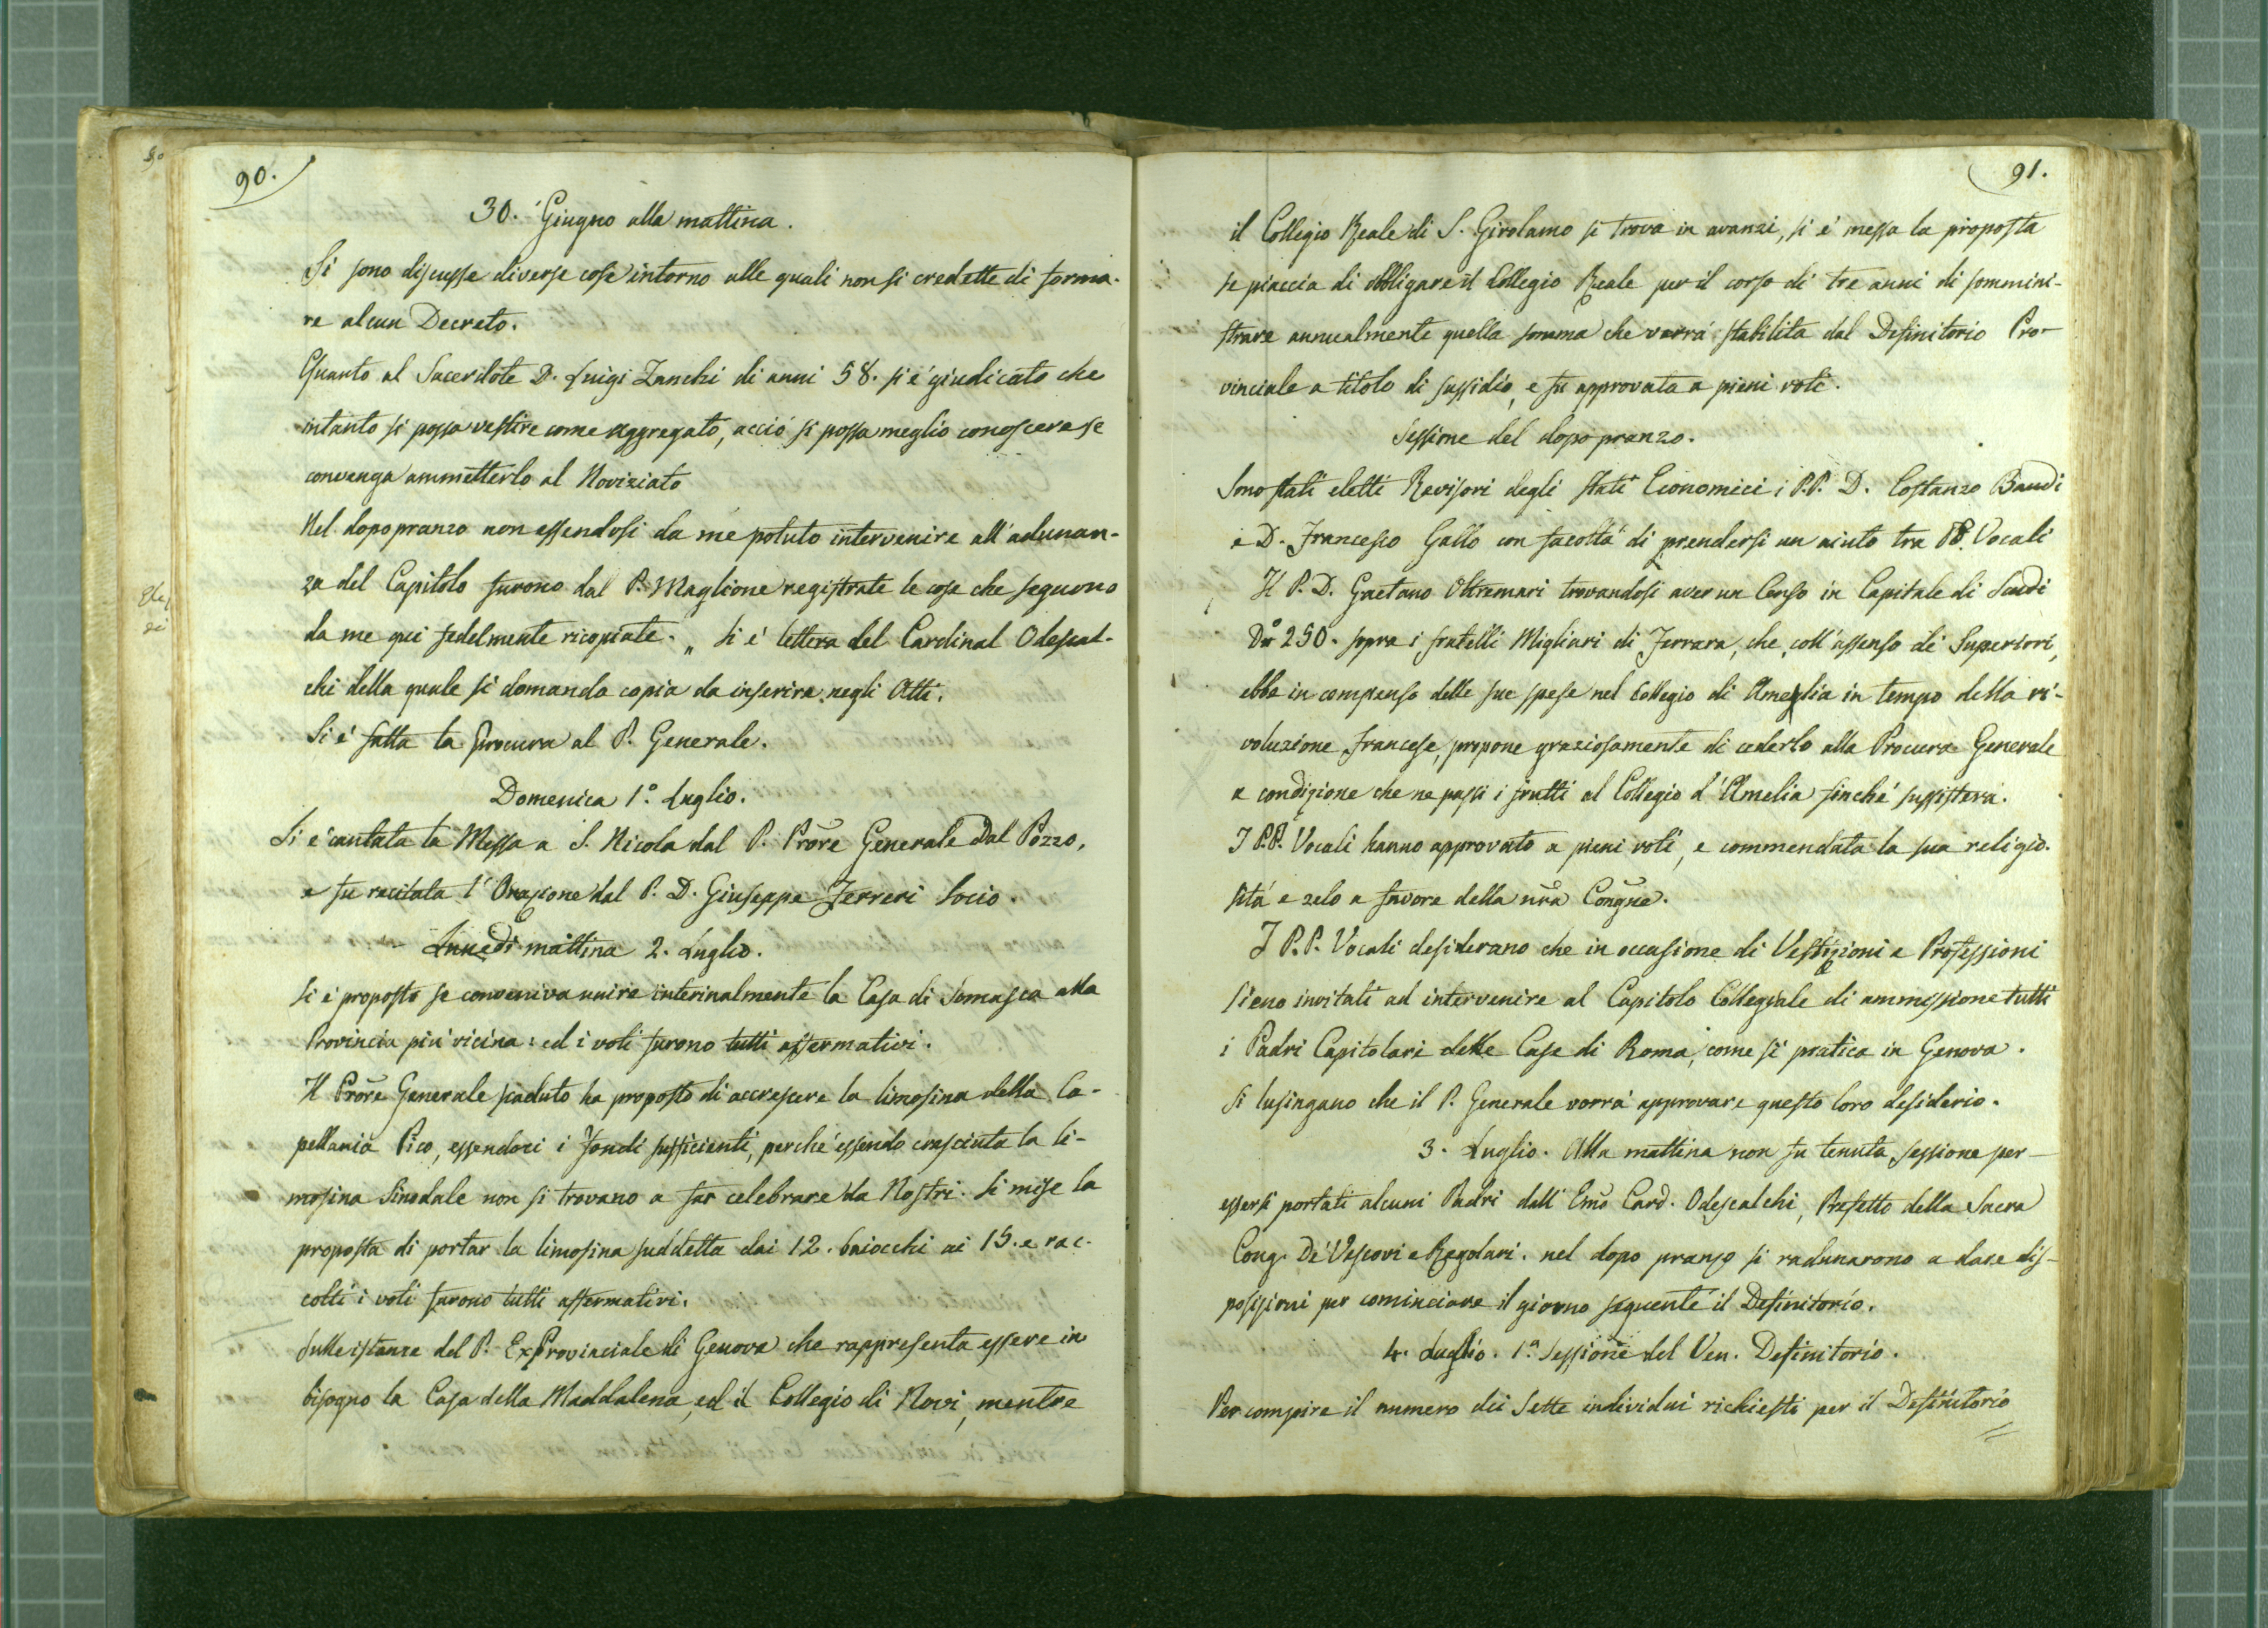 90.
30. Giugno alla mattina.
Si sono discusse diverse cose intorno alle quali non si credette di forma-
re alcun Decreto.
Quanto al Sacerdote D. Luigi Zanchi di anni 58. si é giudicato che
intanto si possa vestire come aggregato, acció si possa meglio conoscere se
convenga ammetterlo al Noviziato
Nel dopopranzo non essendosi da me potuto intervenire all'adunan-
za del Capitolo furono dal P. Maglione registrate le cose che seguono
da me qui fedelmente ricopiate. „ Si é lettera del Cardinal Odescal-
chi della quale si domanda copia da inserire negli Atti.
Si é fatta la Procura al P. Generale.
Domenica 1.º Luglio.
Si é cantata la Messa a S. Nicola dal P. Prõre Generale Dal Pozzo,
e fu recitata l'Orazione dal P. D. Giuseppe Ferreri Socio.
Lunedi mattina 2. Luglio.
Si é proposto se conveniva unire interinalmente la Casa di Somasca alla
Provincia piú vicina: ed i voti furono tutti affermativi.
Il Prõre Generale scaduto ha proposto di accrescere la limosina della Ca-
pellania Pico, essendoci i fondi sufficienti, perché essendo cresciuta la li-
mosina Sinodale non si trovano a far celebrare da Nostri. Si mise la
proposta di portar la limosina suddetta dai 12. baiocchi ai 15. e rac-
colti i voti furono tutti affermativi.
Sulle istanze del P. ExProvinciale di Genova che rappresenta essere in
bisogno la Casa della Maddalena, ed il Collegio di Novi, mentre
91.
il Collegio Reale di S. Girolamo si trova in avanzi, si é messa la proposta
se piaccia di obbligare il Collegio Reale per il corso di tre anni di sommini-
strare annualmente quella somma che verrá stabilita dal Definitorio Pro-
vinciale a titolo di sussidio, e fu approvata a pieni voti.
Sessione del dopo pranzo.
Sono stati eletti Revisori degli stati Economici i P.P. D. Costanzo Baudi
e D. Francesco Gallo con facoltá di prendersi un aiuto tra PP. Vocali
Il P. D. Gaetano Oltremari trovandosi aver un Censo in Capitale di Scudi
250. sopra i fratelli Migliari di Ferrara, che, coll'assenso de Superiori,
ebbe in compenso delle sue spese nel Collegio di Amelia in tempo della ri-
voluzione francese, propone graziosamente di cederlo alla Procura Generale
a condizione che ne passi i frutti al Collegio d'Amelia finché sussisterá.
I P.P. Vocali hanno approvato a pieni voti, e commendata la sua religio-
sitá e zelo a favore della nrã Congñe.
I P.P. Vocali desiderano che in occasione di Vestizioni e Professioni
sieno invitati ad intervenire al Capitolo Collegiale di ammessione tutti
i Padri Capitolari delle Case di Roma, come si pratica in Genova.
Si lusingano che il P. Generale vorrá approvare questo loro desiderio.
3. Luglio. Alla mattina non fu tenuta sessione per
essersi portati alcuni Padri dall'Emo Card. Odescalchi, Prefetto della Sacra
Cong. De' Vescovi e Regolari. nel dopo pranzo si radunarono a dare dis-
posizioni per cominciare il giorno seguente il Definitorio.
4. Luglio. 1.ª Sessione del Ven. Definitorio.
Per compire il numero dei Sette individui richiesti per il Definitorio